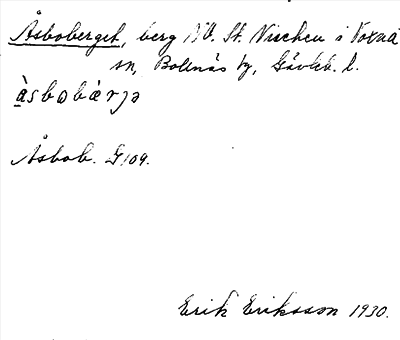 Åsboberget, berg NV. St. Vischen i Voxna
sn, Bollnäs tg, Gävleb. l.
àsbobàrjə
Åsbob. G109.
Erik Eriksson 1930.